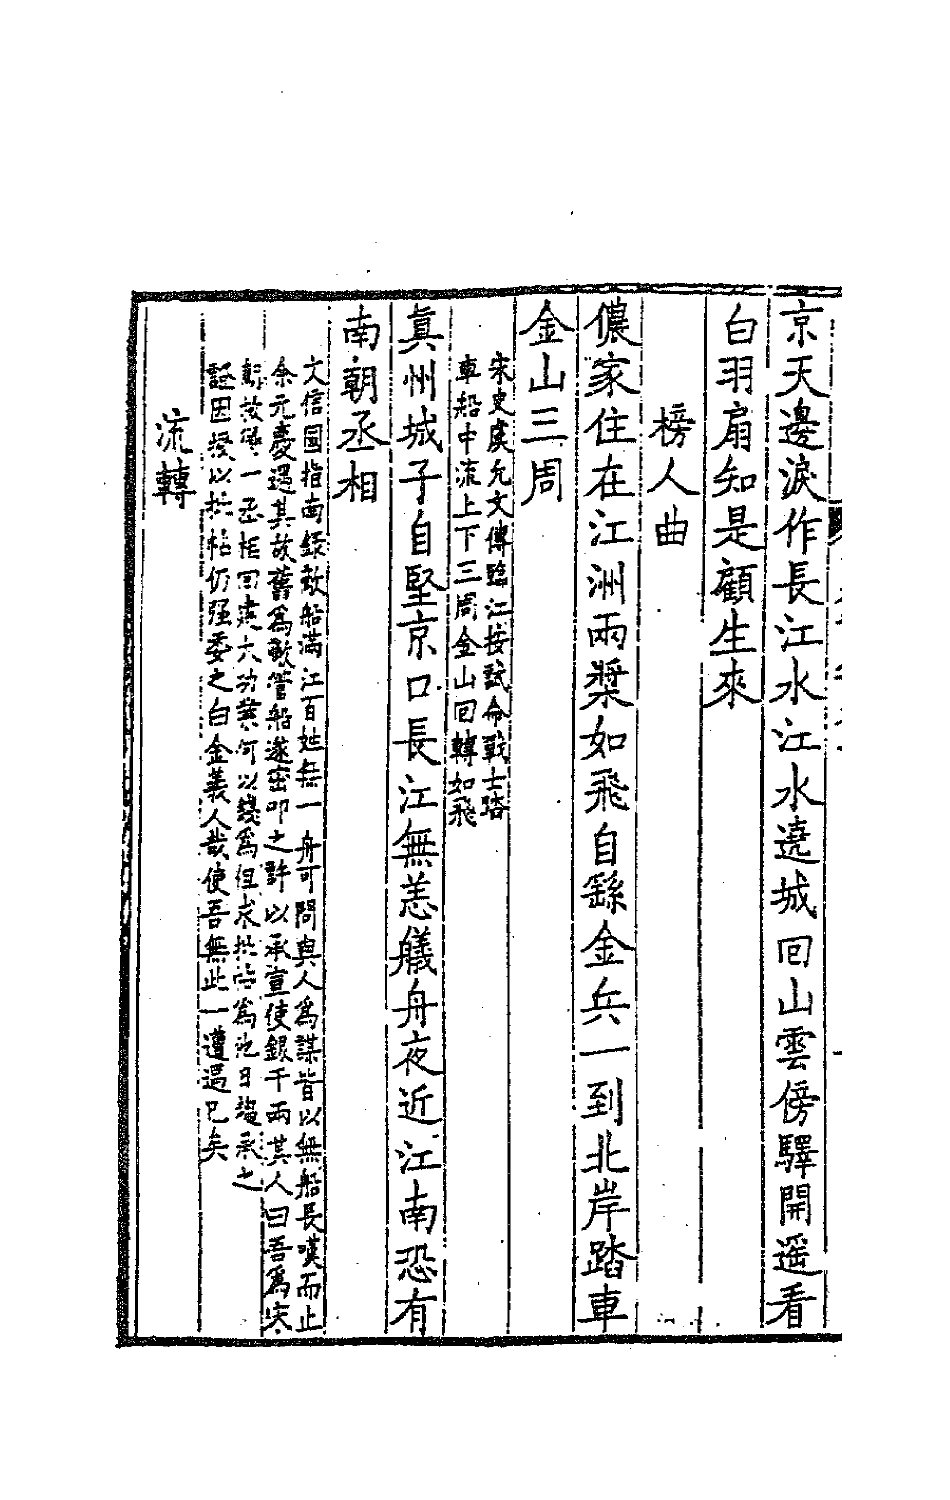 京天邊淚作長江水江水遶城回山雲傍驛開遥看
白羽扇知是顧生來
榜人曲
儂家住在江洲兩槳如飛自繇金兵一到北岸踏車
金山三周
宋史虞允文傳臨江按試命戰士踏
車船中流上下三周金山回轉如飛
眞州城子自堅京口長江無恙艤舟夜近江南恐有
南朝丞相
文信國指南錄敵船滿江百姓無一舟可問與人爲謀皆以無船長嘆而止
余元慶遇其故舊爲敵管船遂密叩之許以承宣使銀千兩其人曰吾爲宋
一丞相回建大功業何以錢爲但求批帖爲他日趨承之
證因授以批帖仍强委之白金義人哉使吾無此一遭遇已矣
流轉